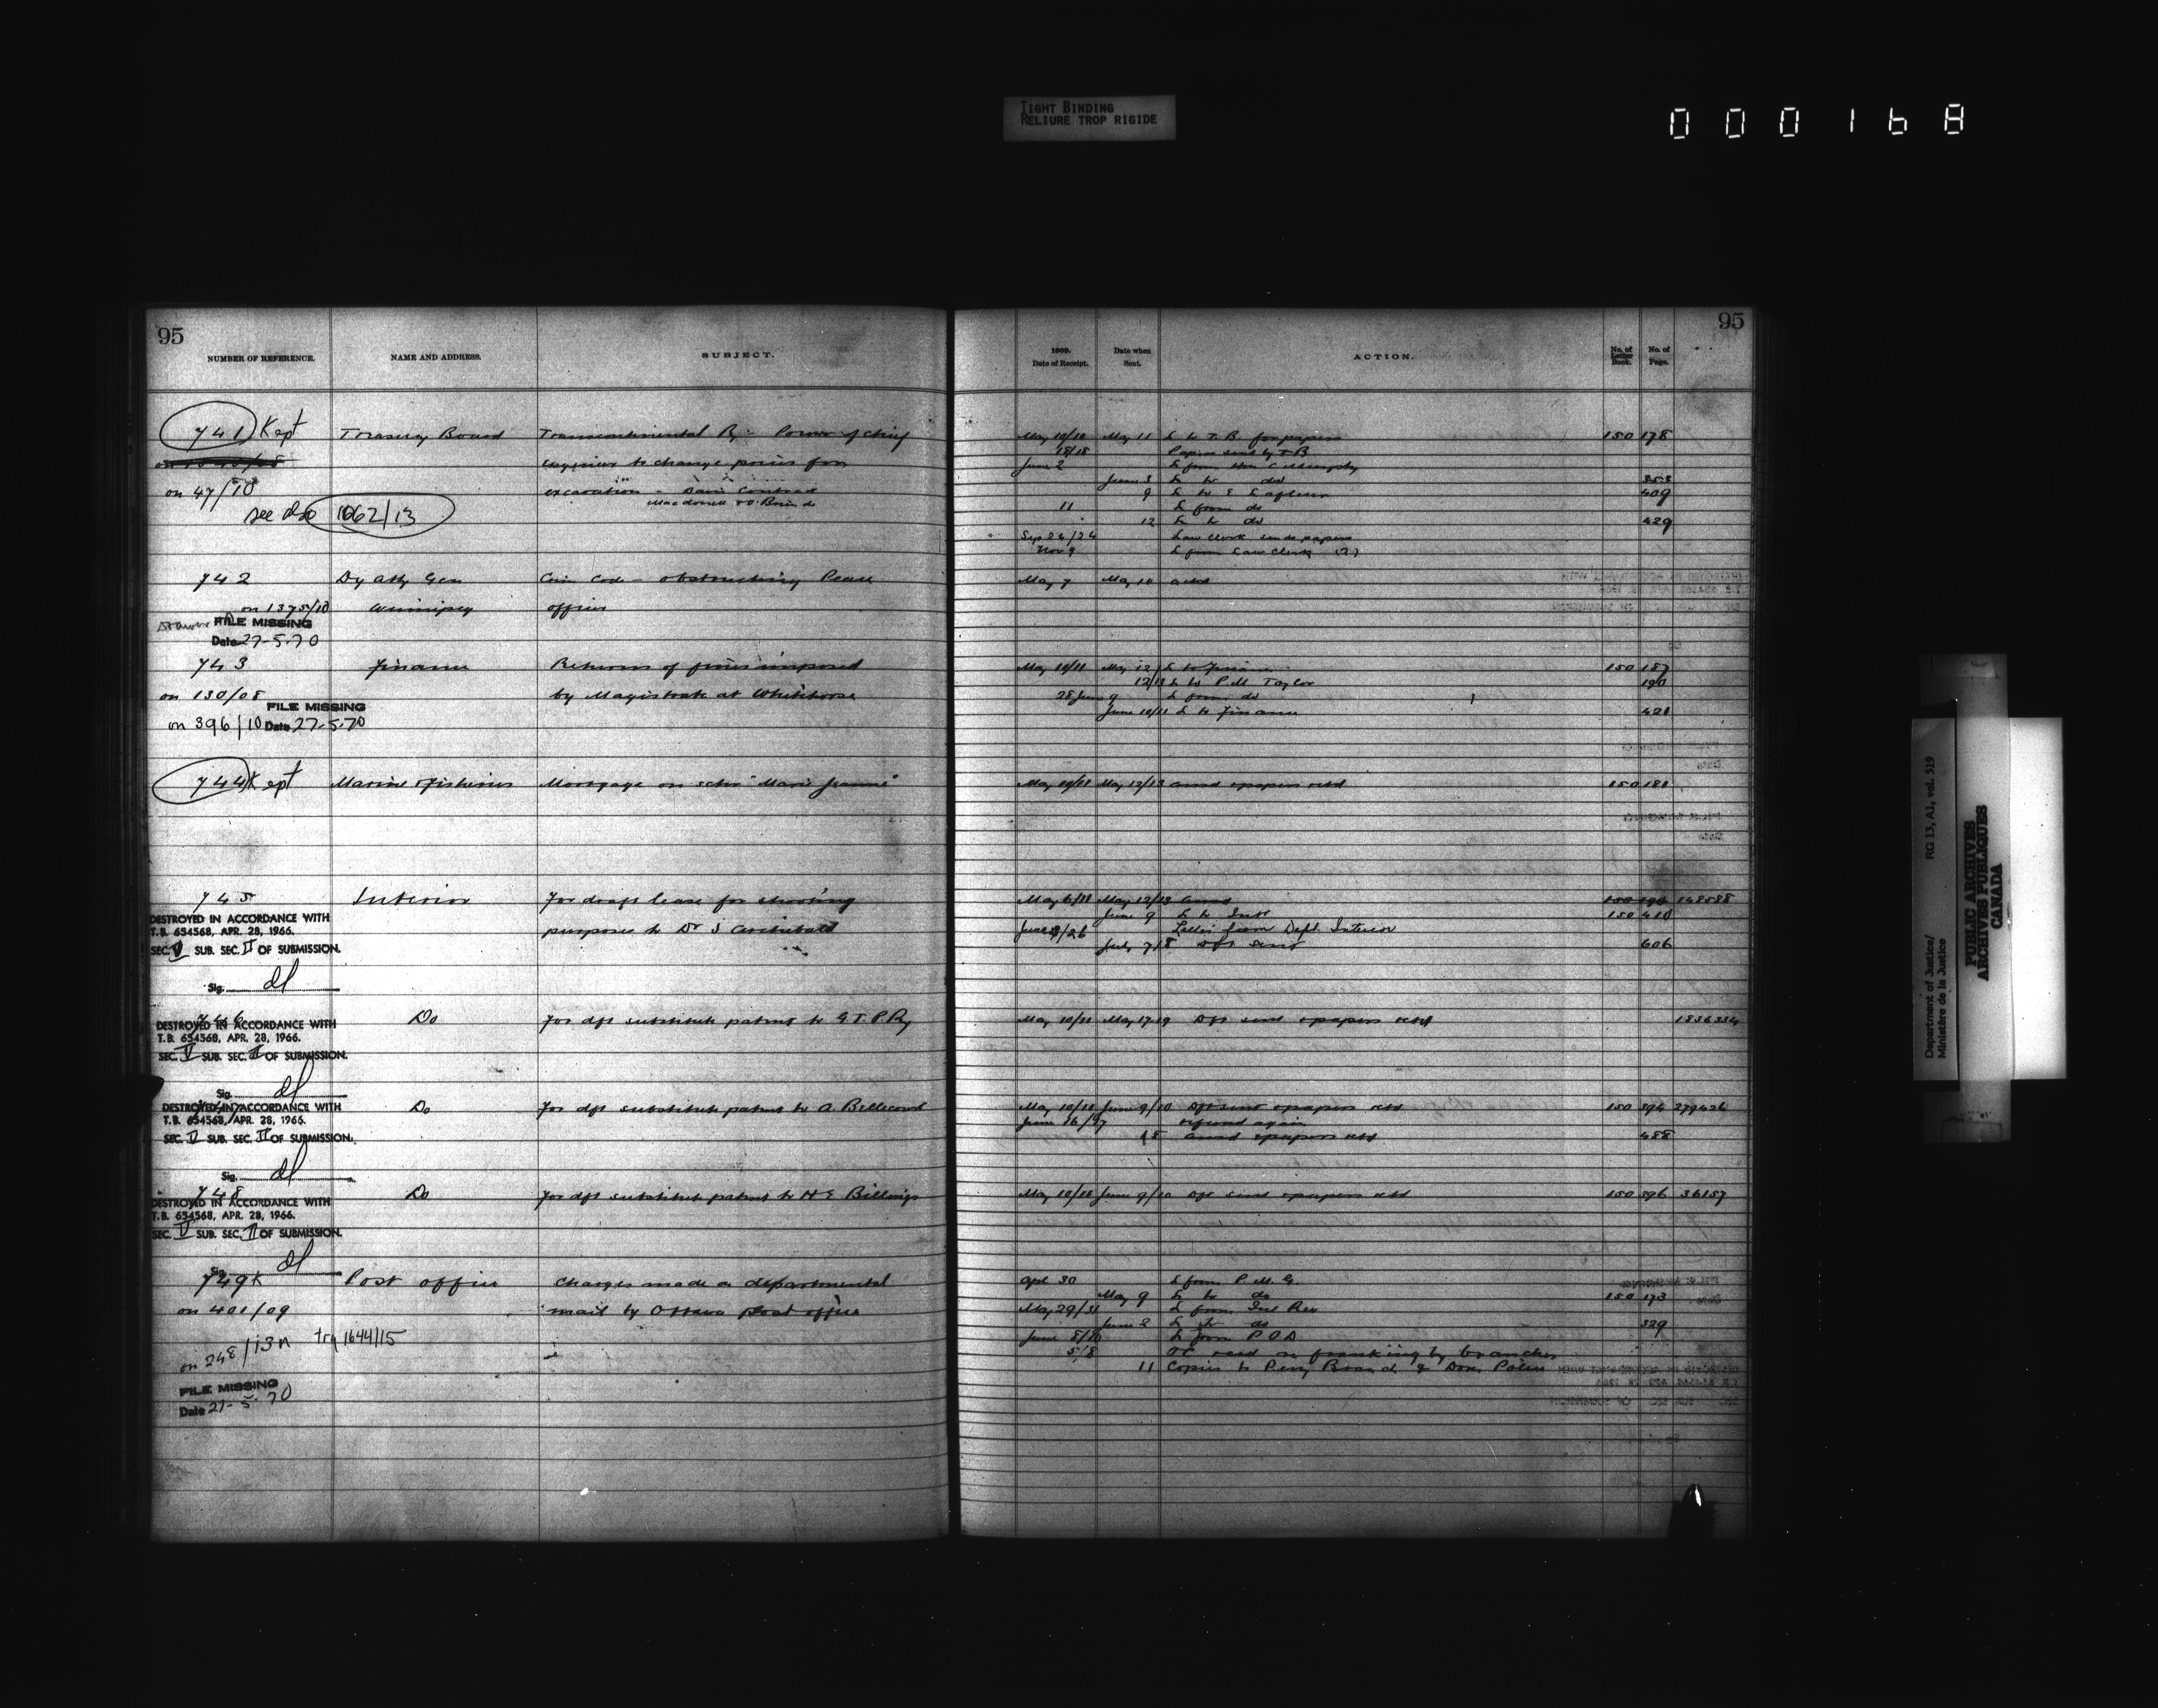 TIGHT BINDING
RELIURE TROP RIGIDE
000168
95
NUMBER OF REFERENCE.
NAME AND ADDRESS.
SUBJECT.
741 Kept
Treasury Board
Transcontinental Ry - Power of Chief
engineer to change prices for
on 47/10
excavation - Davis Contract
see also 1662/13
742
Dy Atty Gen
Crim Code - obstructing Peace
on 1375/10
Winnipeg
officer
FILE MISSING
Date 27-5-70
743
Finance
Returns of fines imposed
on 130/08
by Magistrate at Whitehorse
FILE MISSING
on 396/10 Date 27-5-70
744 Kept
Marine & Fisheries
Mortgage on schr "Marie Jeanne"
745
Interior
For draft lease for shooting
DESTROYED IN ACCORDANCE WITH
T.B. 654568, APR. 28, 1966.
purposes to Dr
SEC. V SUB. SEC. II OF SUBMISSION.
Sig. dl
746
Do
For dft substitute patent to G.T.P. Ry
DESTROYED IN ACCORDANCE WITH
T.B. 654568, APR. 28, 1966.
SEC. V SUB. SEC. II OF SUBMISSION.
Sig. dl
Do
For dft substitute patent to A. Bellecourt
DESTROYED IN ACCORDANCE WITH
T.B. 654568, APR. 28, 1966.
SEC. V SUB. SEC. II OF SUBMISSION.
Sig. dl
748
Do
For dft substitute patent to H E Billings
DESTROYED IN ACCORDANCE WITH
T.B. 654568, APR. 28, 1966.
SEC. V SUB. SEC. II OF SUBMISSION.
Sig. dl
749 K
Post office
Charges made on departmental
on 401/09
mail by Ottawa post office
on 248/13 try 1644/15
FILE MISSING
Date 27-5-70
95
1909.
Date of Receipt.
Date when
Sent.
ACTION.
No. of
Letter
Book.
No. of
Page.
May 10/10 May 11 L to T.B. for papers 150 178
18/18 Papers sent by T B
June 2 L from Hon C Murphy
June 3 L to do 353
9 L to 409
11 L from do
12 L to do 429
Sep 24/24 Law Clerk sends papers
Nov 9 L from Law Clerk (2)
May 7 May 10 ackd
May 10/11 May 12 L to Finance 150 187
12/13 L to P M Taylor 190
28 June 9 L from do
June 10/11 L to Finance 421
May 10/11 May 12/13 ansd & papers retd 150 181
May 6/11 May 12/13 ansd 148588
June 9 L to Int 150 410
Letter from Dept. Interior
July 7/8 Dft sent 606
May 10/11 May 17-19 Dft sent & papers retd 1836334
May 10/11 June 9/10 Dft sent & papers retd 150 394 279426
June 16/17 referred again
18 ansd & papers retd 488
May 10/11 June 9/10 Dft sent & papers retd 150 396 36157
Apl 30 L from P. M. G.
May 9 L to do 150 173
May 29/31 L from Inl Rev
June 2 L to do 329
L from P O D
OC recd re franking by branches
11 Copies to Peny Branch & Dom Police
Department of Justice/ RG 13, A1, vol. 519
Ministère de la Justice
PUBLIC ARCHIVES
ARCHIVES PUBLIQUES
CANADA